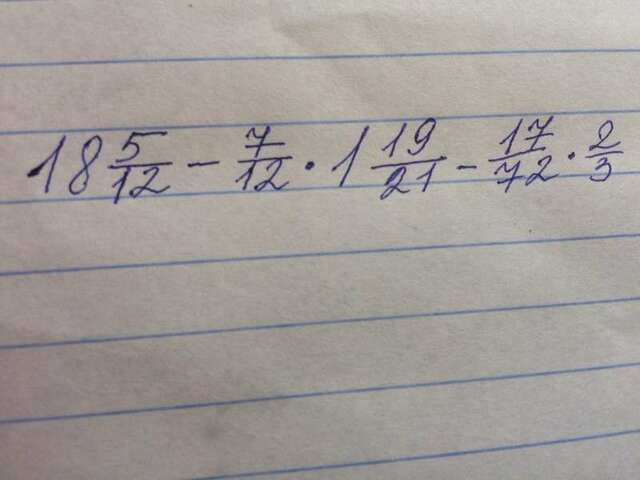 18 5/12 - 7/12 · 1 19/21 - 17/72 · 2/3